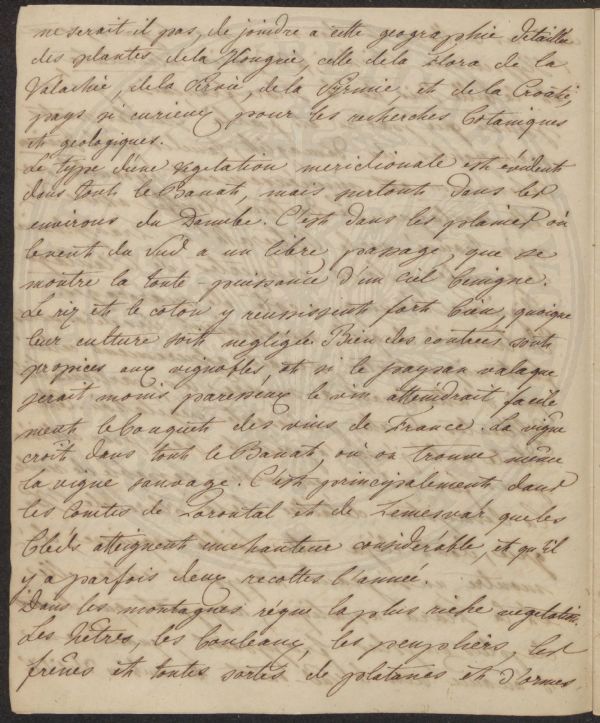 ne serait il pas, de joindre a cette geographie detaillée
des plantes de la Hongrie, celle de la Flora de la
Valachie, de la Servie, de la Syrmie et de la Croatie,
pays si curieux pour les recherches botaniques
et geologiques.
Le type d'une végetation meridionale est évident
dans tout le Banat, mais surtout dans les
environs du Danube. C'est dans les plaines où
levent du Sud a un libre passage, que se
montre la toute-puissance d'un ciel benigne.
Le riz et le coton y réussissent fort bien, quoique
leur culture soit negligée. Bien des contrées sont
propices aux vignobles, et si le paysan valaque
serait moins paresseux le vin atteindrait facile
ment le bouquet des vins de France. La vigne
croît dans tout le Banat, où on trouve même
la vigne sauvage. C'est principalement dans
les Comtés de Torontal et de Temesvár que les
bleds atteignent une hauteur considérable, et qu'il
y a parfois deux recoltes l'année.
Dans les montagnes régne la plus riche vegetation.
Les hêtres, les bouleaux, les peupliers, les
frênes et toutes sortes de platanes et d'ormes